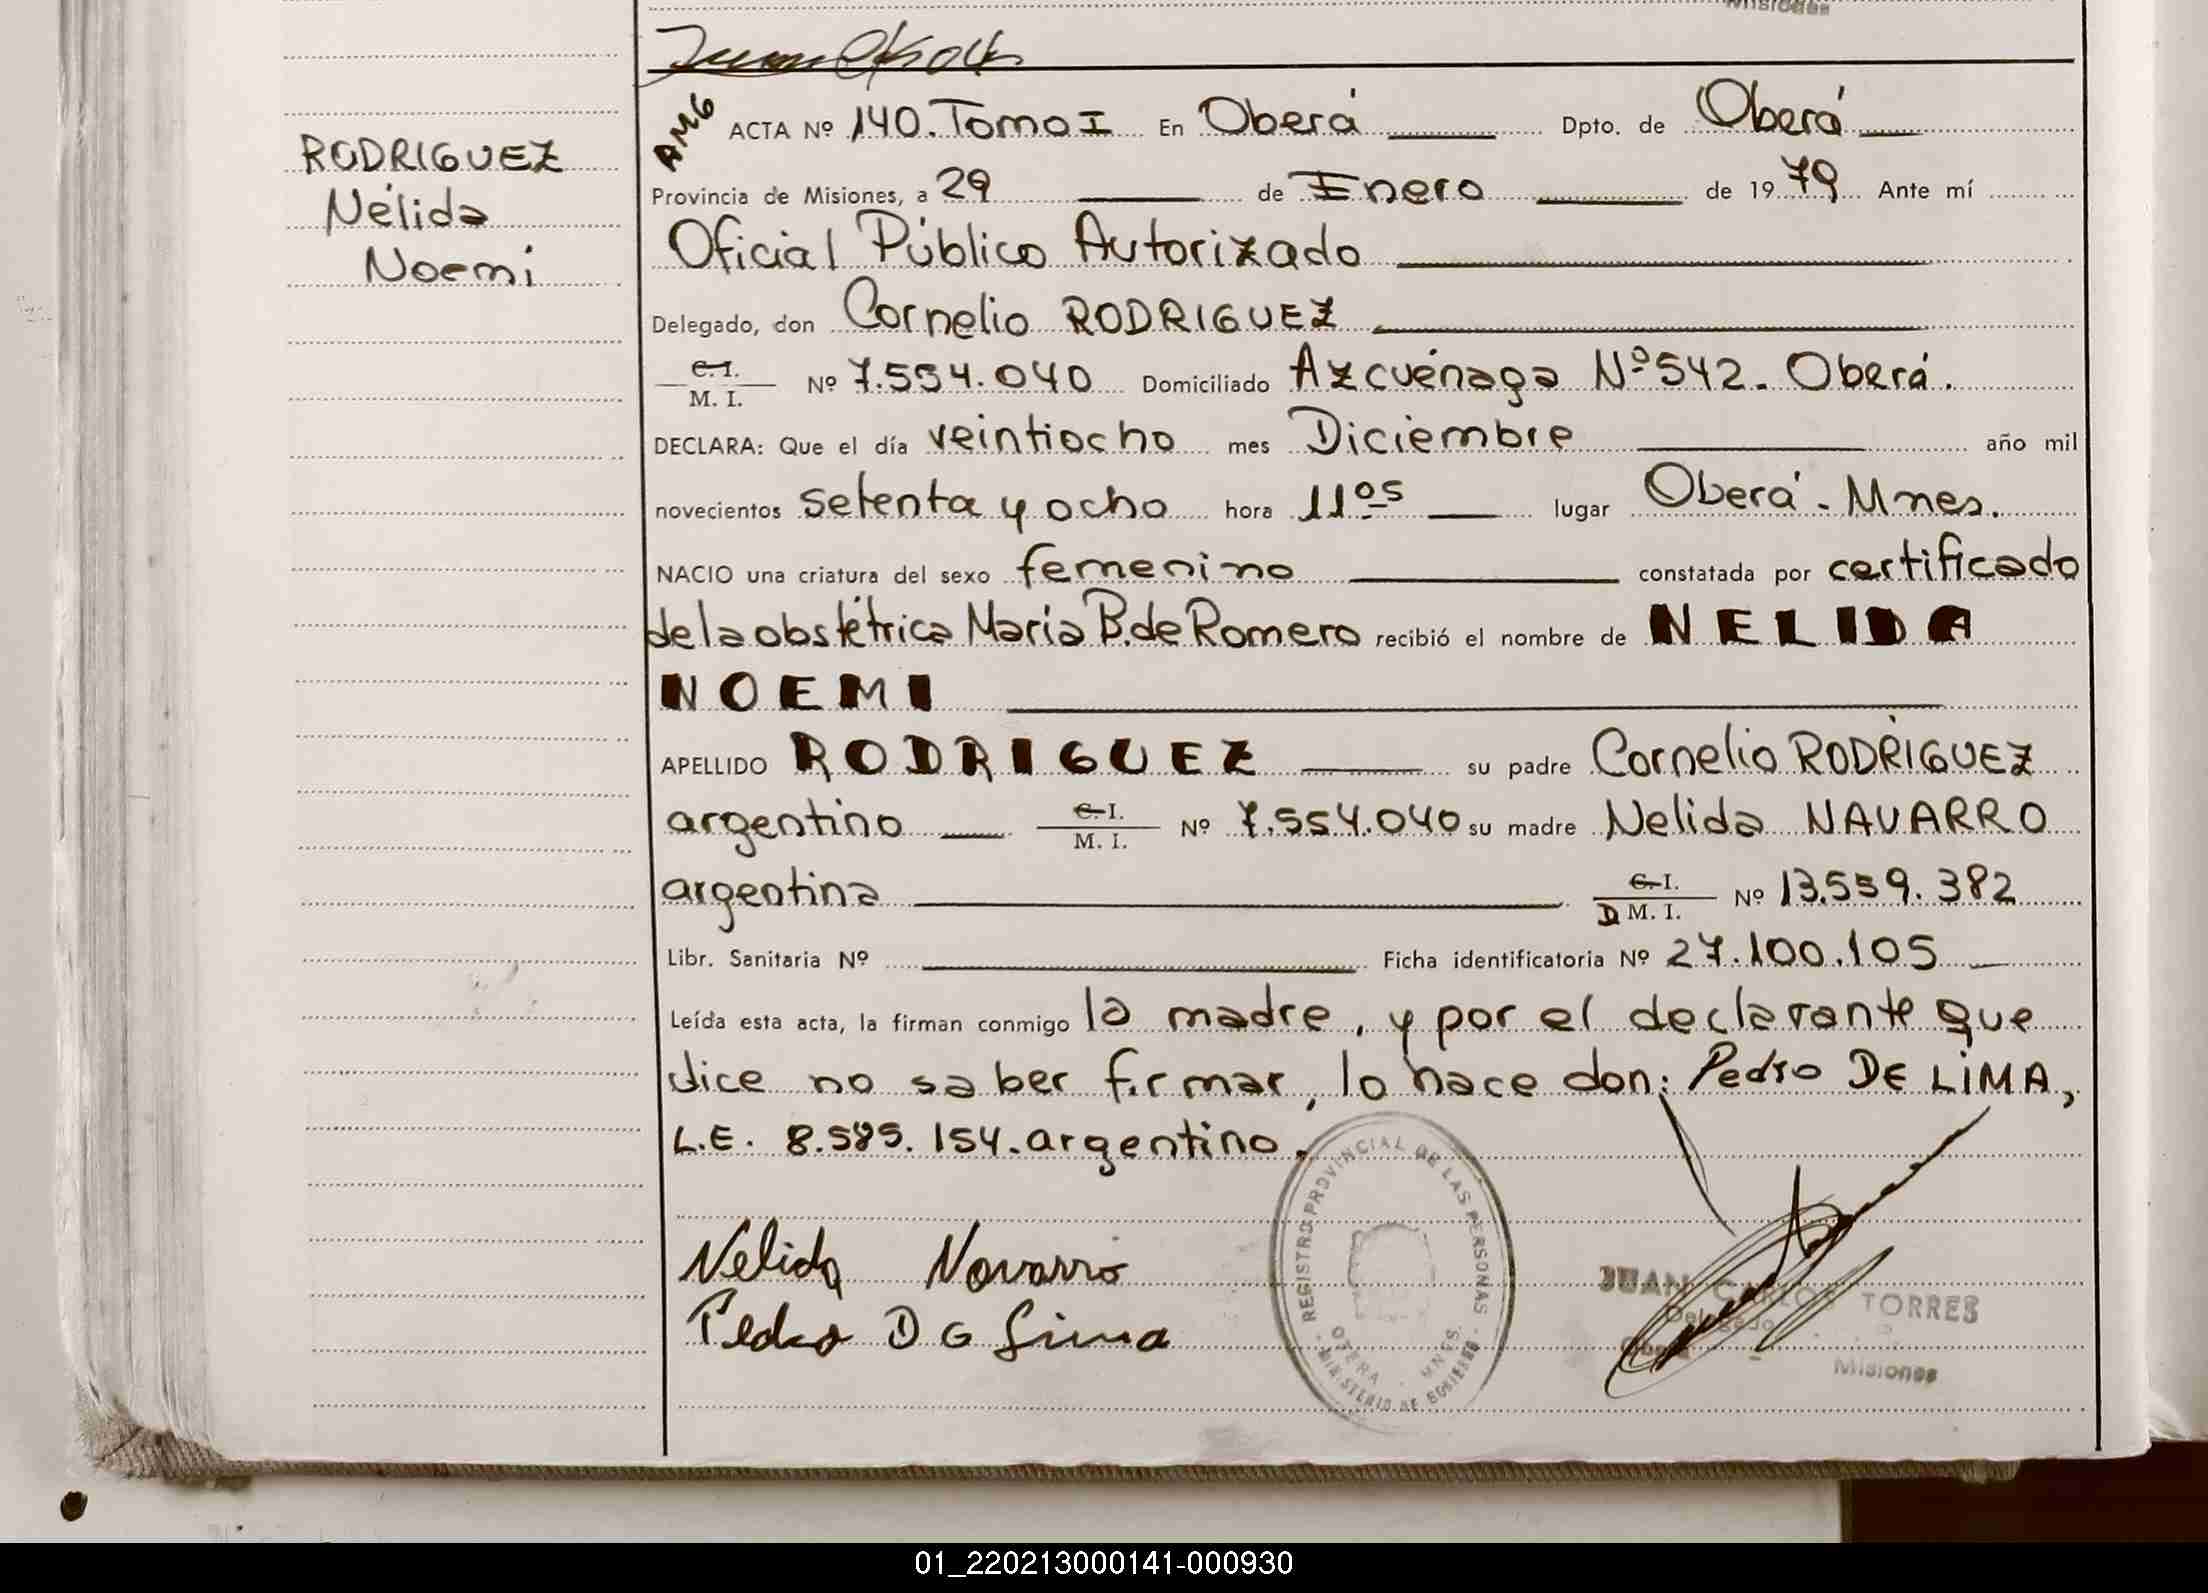 Misiones
RODRIGUEZ
Nélida
Noemi
AMG
ACTA Nº 140. Tomo I En Oberá Dpto. de Oberá
Provincia de Misiones, a 29 de Enero de 1979 Ante mí
Oficial Público Autorizado
Delegado, don Cornelio RODRIGUEZ
C. I.
M. I. Nº 7.554.040 Domiciliado Azcuénaga Nº 542. Oberá.
DECLARA: Que el día veintiocho mes Diciembre año mil
novecientos setenta y ocho hora 11 05 lugar Oberá - Mnes.
NACIO una criatura del sexo femenino constatada por certificado
de la obstétrica Maria B. de Romero recibió el nombre de NELIDA
NOEMI
APELLIDO RODRIGUEZ su padre Cornelio RODRIGUEZ
argentino C. I. M. I. Nº 7.554.040 su madre Nelida NAVARRO
argentina C. I. D M. I. Nº 13.559.382
Libr. Sanitaria Nº Ficha identificatoria Nº 27.100.105
Leída esta acta, la firman conmigo la madre, y por el declarante que
dice no saber firmar, lo hace don: Pedro DE LIMA,
L.E. 8.585.154. argentino.
Nelida Navarro
Pedro DG Lima
REGISTRO PROVINCIAL DE LAS PERSONAS
MINISTERIO DE GOBIERNO
JUAN CARLOS TORRES
Delegado
Oberá Misiones
01_220213000141-000930